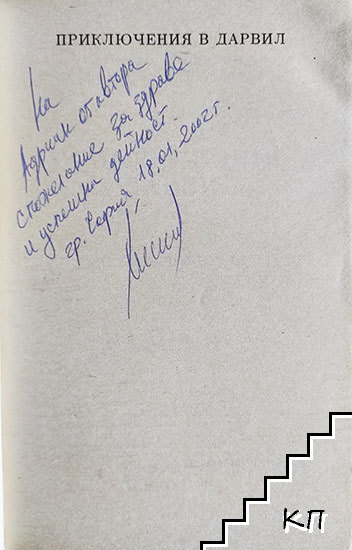 ПРИКЛЮЧЕНИЯ В ДАРВИЛ
На
Адриан от автора
с пожелание за здраве
и успешна дейност.
гр. София 18.01.2002 г.
КП